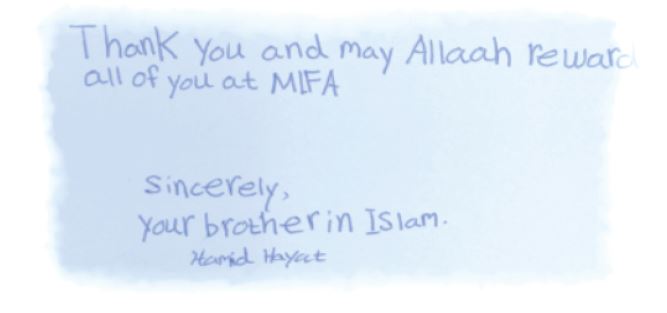 Thank you and may Allaah reward
all of you at MLFA
Sincerely,
your brother in Islam.
Hamid Hayat